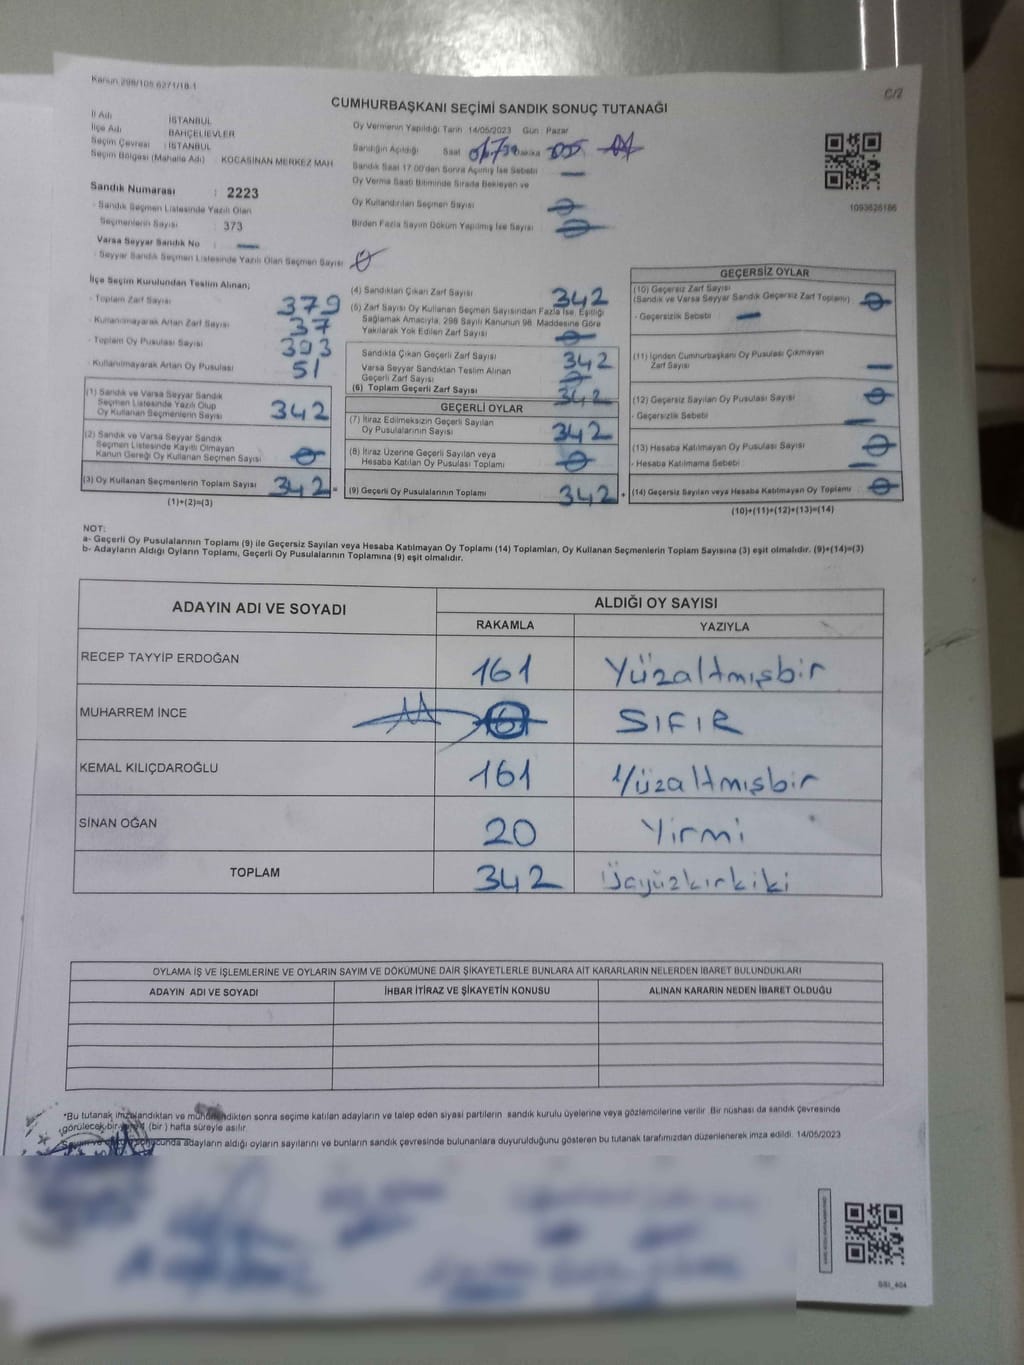 Kanun 298/105 6271/18-1
C/2
CUMHURBAŞKANI SEÇİMİ SANDIK SONUÇ TUTANAĞI
İl Adı : İSTANBUL
İlçe Adı : BAHÇELİEVLER
Seçim Çevresi : İSTANBUL
Seçim Bölgesi (Mahalle Adı) : KOCASİNAN MERKEZ MAH
Sandık Numarası : 2223
- Sandık Seçmen Listesinde Yazılı Olan
Seçmenlerin Sayısı : 373
Varsa Seyyar Sandık No : —
- Seyyar Sandık Seçmen Listesinde Yazılı Olan Seçmen Sayısı : 0
Oy Vermenin Yapıldığı Tarih 14/05/2023 Gün : Pazar
Sandığın Açıldığı Saat Dakika
Sandık Saat 17:00'den Sonra Açılmış İse Sebebi —
Oy Verme Saati Bitiminde Sırada Bekleyen ve
Oy Kullandırılan Seçmen Sayısı 0
Birden Fazla Sayım Döküm Yapılmış İse Sayısı 0
1093626186
İlçe Seçim Kurulundan Teslim Alınan;
- Toplam Zarf Sayısı 379
- Kullanılmayarak Artan Zarf Sayısı 37
- Toplam Oy Pusulası Sayısı 393
- Kullanılmayarak Artan Oy Pusulası 51
(1) Sandık ve Varsa Seyyar Sandık
Seçmen Listesinde Yazılı Olup
Oy Kullanan Seçmenlerin Sayısı 342
(2) Sandık ve Varsa Seyyar Sandık
Seçmen Listesinde Kayıtlı Olmayan
Kanun Gereği Oy Kullanan Seçmen Sayısı 0
(3) Oy Kullanan Seçmenlerin Toplam Sayısı 342 =
(1)+(2)=(3)
(4) Sandıktan Çıkan Zarf Sayısı 342
(5) Zarf Sayısı Oy Kullanan Seçmen Sayısından Fazla İse, Eşitliği
Sağlamak Amacıyla, 298 Sayılı Kanunun 98. Maddesine Göre
Yakılarak Yok Edilen Zarf Sayısı 0
Sandıkta Çıkan Geçerli Zarf Sayısı 342
Varsa Seyyar Sandıktan Teslim Alınan
Geçerli Zarf Sayısı 0
(6) Toplam Geçerli Zarf Sayısı 342
GEÇERLİ OYLAR
(7) İtiraz Edilmeksizin Geçerli Sayılan
Oy Pusulalarının Sayısı 342
(8) İtiraz Üzerine Geçerli Sayılan veya
Hesaba Katılan Oy Pusulası Toplamı 0
(9) Geçerli Oy Pusulalarının Toplamı 342 +
GEÇERSİZ OYLAR
(10) Geçersiz Zarf Sayısı
(Sandık ve Varsa Seyyar Sandık Geçersiz Zarf Toplamı) 0
- Geçersizlik Sebebi : —
(11) İçinden Cumhurbaşkanı Oy Pusulası Çıkmayan
Zarf Sayısı —
(12) Geçersiz Sayılan Oy Pusulası Sayısı 0
- Geçersizlik Sebebi —
(13) Hesaba Katılmayan Oy Pusulası Sayısı 0
- Hesaba Katılmama Sebebi —
(14) Geçersiz Sayılan veya Hesaba Katılmayan Oy Toplamı 0
(10)+(11)+(12)+(13)=(14)
NOT:
a- Geçerli Oy Pusulalarının Toplamı (9) ile Geçersiz Sayılan veya Hesaba Katılmayan Oy Toplamı (14) Toplamları, Oy Kullanan Seçmenlerin Toplam Sayısına (3) eşit olmalıdır. (9)+(14)=(3)
b- Adayların Aldığı Oyların Toplamı, Geçerli Oy Pusulalarının Toplamına (9) eşit olmalıdır.
ADAYIN ADI VE SOYADI
ALDIĞI OY SAYISI
RAKAMLA YAZIYLA
RECEP TAYYİP ERDOĞAN 161 Yüzaltmışbir
MUHARREM İNCE SIFIR
KEMAL KILIÇDAROĞLU 161 Yüzaltmışbir
SİNAN OĞAN 20 Yirmi
TOPLAM 342 Üçyüzkırkiki
OYLAMA İŞ VE İŞLEMLERİNE VE OYLARIN SAYIM VE DÖKÜMÜNE DAİR ŞİKAYETLERLE BUNLARA AİT KARARLARIN NELERDEN İBARET BULUNDUKLARI
ADAYIN ADI VE SOYADI İHBAR İTİRAZ VE ŞİKAYETİN KONUSU ALINAN KARARIN NEDEN İBARET OLDUĞU
*Bu tutanak imzalandıktan ve mühürlendikten sonra seçime katılan adayların ve talep eden siyasi partilerin sandık kurulu üyelerine veya gözlemcilerine verilir. Bir nüshası da sandık çevresinde
görülecek bir yere 1 (bir) hafta süreyle asılır.
Sayım ve sonucunda adayların aldığı oyların sayılarını ve bunların sandık çevresinde bulunanlara duyurulduğunu gösteren bu tutanak tarafımızdan düzenlenerek imza edildi. 14/05/2023